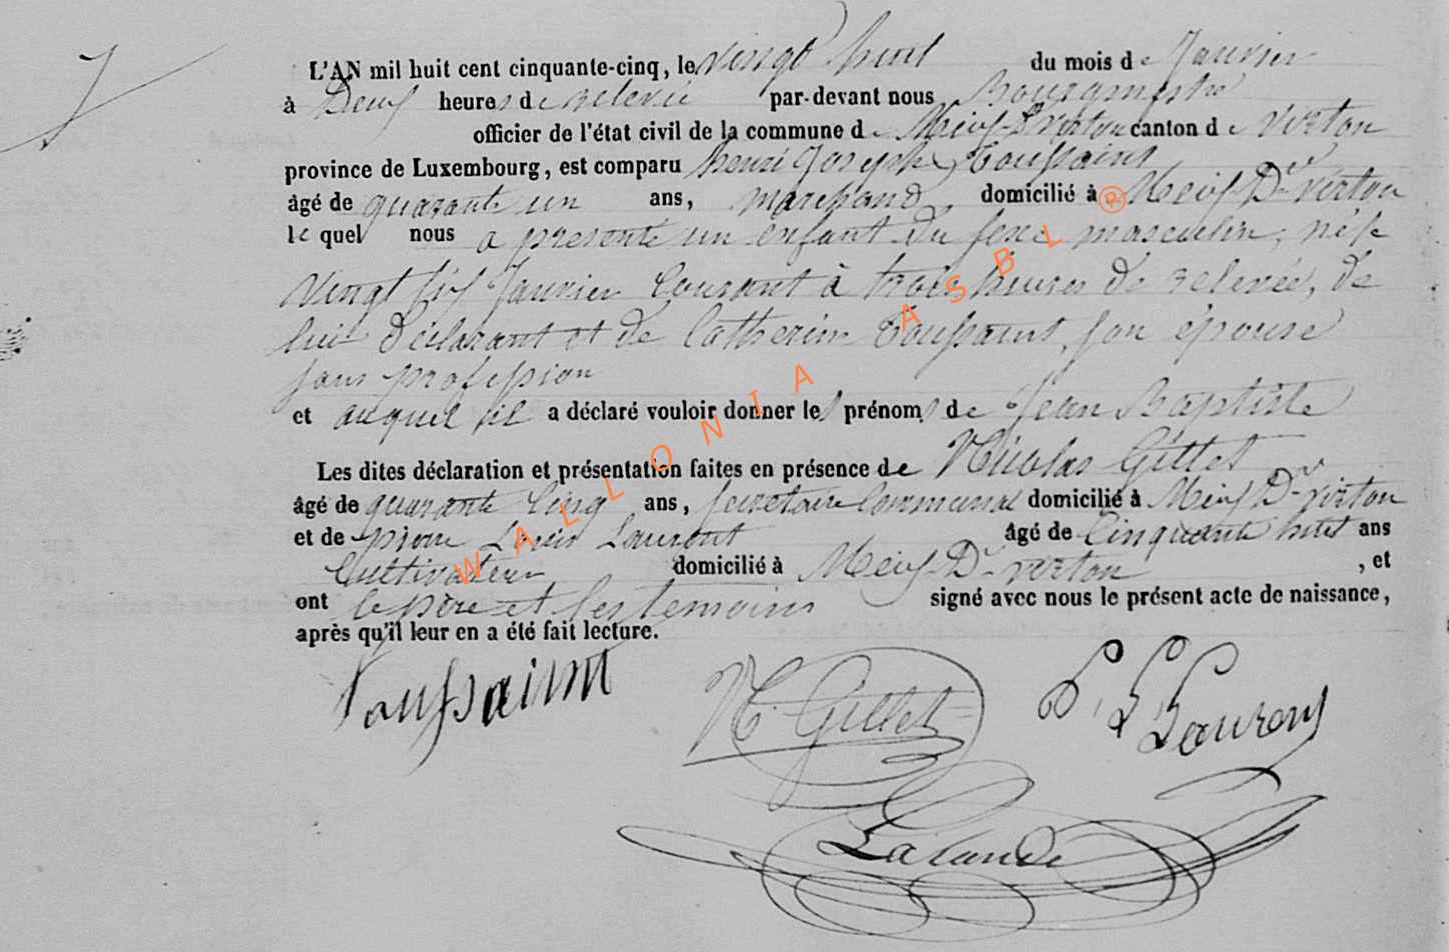 L'AN mil huit cent cinquante-cinq, le vingt huit du mois de Janvier
à Deux heures de relevée par-devant nous Bourgmestre
officier de l'état civil de la commune de Meix-Dt Virton canton de Virton
province de Luxembourg, est comparu henri Joseph Toussaint
âgé de quarante un ans, marchand domicilié à Meix Dt virton
le quel nous a presenté un enfant du sexe masculin, né le
vingt six Janvier Courant à trois heures de relevée, de
lui déclarant et de Catherine Toussaint, son épouse
sans profession
et auquel il a déclaré vouloir donner les prénoms de Jean Baptiste
Les dites déclaration et présentation faites en présence de Nicolas Gillet
âgé de quarante Cinq ans, secretaire Communal domicilié à Meix Dt virton
et de pierre Louis Laurent âgé de Cinquante huit ans
Cultivateur domicilié à Meix-Dt-virton, et
ont le père et les temoins signé avec nous le présent acte de naissance,
après qu'il leur en a été fait lecture.
Toussaint N. Gillet P. L. Laurent
Lalande
WALLONIA ASBL ®